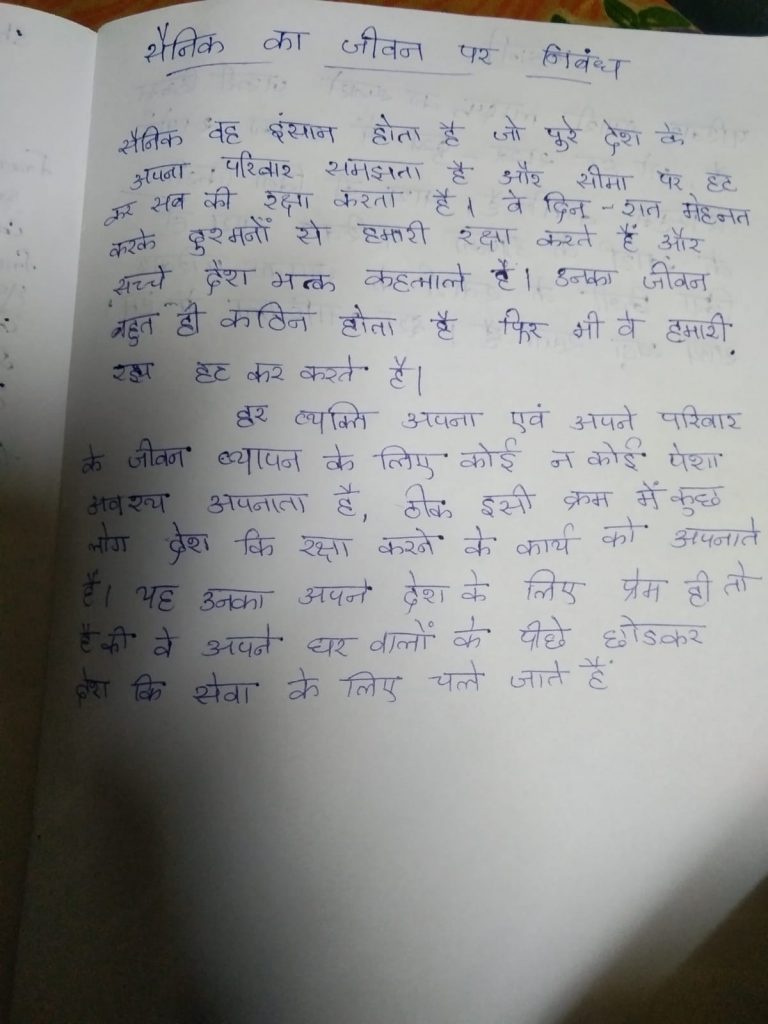 सैनिक का जीवन पर निबंध
सैनिक वह इंसान होता है जो पुरे देश के
अपना परिवार समझता है और सीमा पर हट
कर सब की रक्षा करता है। वे दिन - रात मेहनत
करके दुश्मनों से हमारी रक्षा करते हैं और
सच्चे देश भक्त कहलाते हैं। उनका जीवन
बहुत ही कठिन होता है फिर भी वे हमारी
हट कर करते है।
हर व्यक्ति अपना एवं अपने परिवार
के जीवन व्यापन के लिए कोई न कोई पेशा
अवश्य अपनाता है, ठीक इसी क्रम में कुछ
लोग देश कि रक्षा करने के कार्य को अपनाते
हैं। यह उनका अपने देश के लिए प्रेम ही तो
है की वे अपने घर वालों के पीछे छोडकर
देश कि सेवा के लिए चले जाते हैं